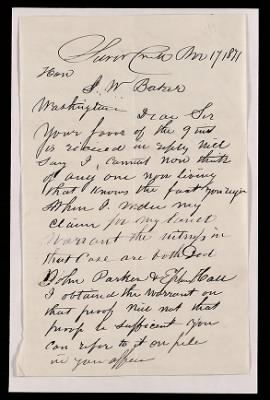 Silver Creek Nov 17 1871
Hon
J. W. Baker
Washington Dear Sir
Your favor of the 9 inst
is received in reply will
Say I cannot now think
of any one now living
that knows the fact you require
When I made my
claim for my land
Warrant the witness in
that Case are both Dead
John Parker & Hall
I obtained the warrant on
that proof will not that
proof be sufficient you
can refer to it on file
in your office